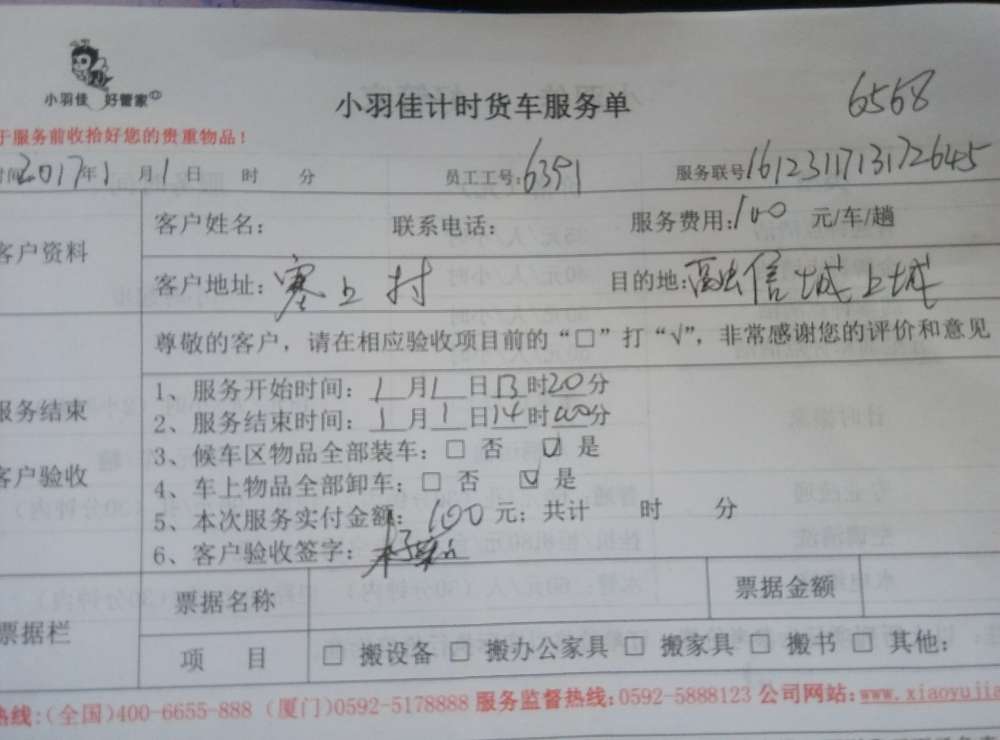 小羽佳 好管家
小羽佳计时货车服务单
6568
于服务前收拾好您的贵重物品！
时间2017年1月1日 时 分 员工工号:6391 服务联号1612311713172645
客户资料
客户姓名： 联系电话： 服务费用:100 元/车/趟
客户地址：寨上村 目的地: 信城上城
尊敬的客户，请在相应验收项目前的“□”打“√”，非常感谢您的评价和意见
服务结束
客户验收
1、服务开始时间：1月1日13时20分
2、服务结束时间：1月1日14时00分
3、候车区物品全部装车：□ 否 ☑ 是
4、车上物品全部卸车：□ 否 ☑ 是
5、本次服务实付金额：100元；共计 时 分
6、客户验收签字：
票据栏
票据名称 票据金额
项 目 □ 搬设备 □ 搬办公家具 □ 搬家具 □ 搬书 □ 其他：
热线:(全国)400-6655-888 (厦门)0592-5178888 服务监督热线:0592-5888123 公司网站:www.xiaoyujia